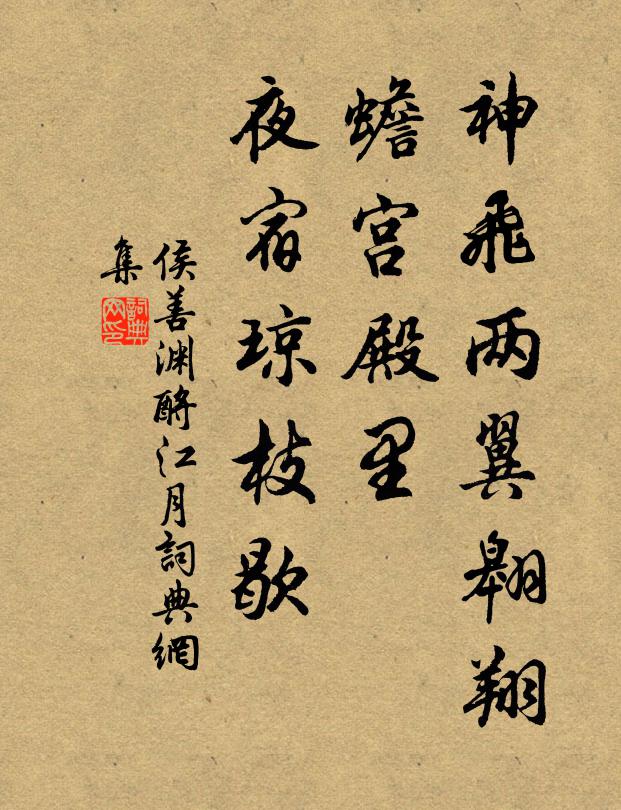 神飛两翼翱翔
蟾宫殿里
夜宿琼枝歇
侯善渊酹江月詞典網
集
詞典
网印